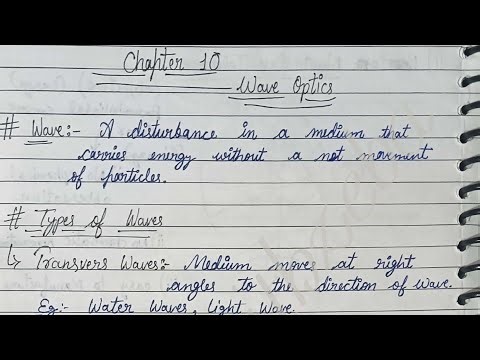 Chapter 10
Wave Optics
# Wave:- A disturbance in a medium that
carries energy without a not movement
of particles.
# Types of Waves
↳ Transvers Waves:- Medium moves at right
angles to the direction of wave.
Eg:- Water Waves, Light Wave.